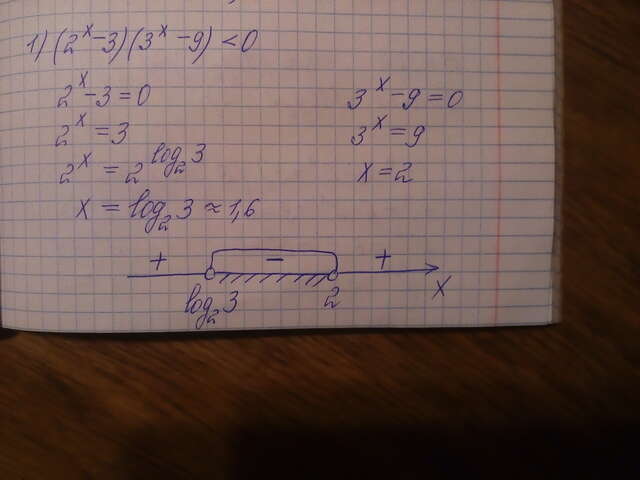 1) (2^x - 3)(3^x - 9) < 0
2^x - 3 = 0
2^x = 3
2^x = 2^{log_2 3}
x = log_2 3 ≈ 1,6
3^x - 9 = 0
3^x = 9
x = 2
+ - +
log_2 3 2 x